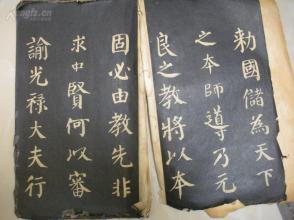 勅國儲為天下
之本師導乃元
良之教將以本
固必由教先非
求中賢何以審
諭光禄大夫行